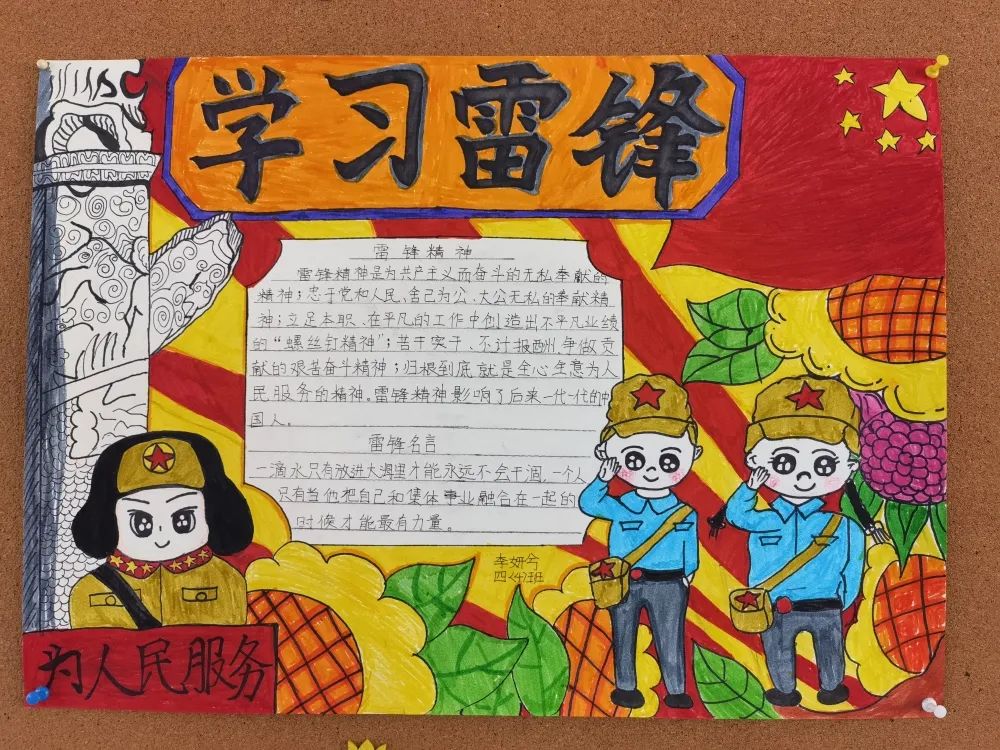 学习雷锋
雷锋精神
雷锋精神是为共产主义而奋斗的无私奉献的
精神；忠于党和人民、舍己为公、大公无私的奉献精
神；立足本职、在平凡的工作中创造出不平凡业绩
的“螺丝钉精神”；苦干实干、不计报酬，争做贡
献的艰苦奋斗精神；归根到底就是全心全意为人
民服务的精神。雷锋精神影响了后来一代一代的中
国人。
雷锋名言
一滴水只有放进大海里才能永远不会干涸，一个人
只有当他把自己和集体事业融合在一起的
时候才能最有力量。
李妍兮
四〈4〉班
为人民服务